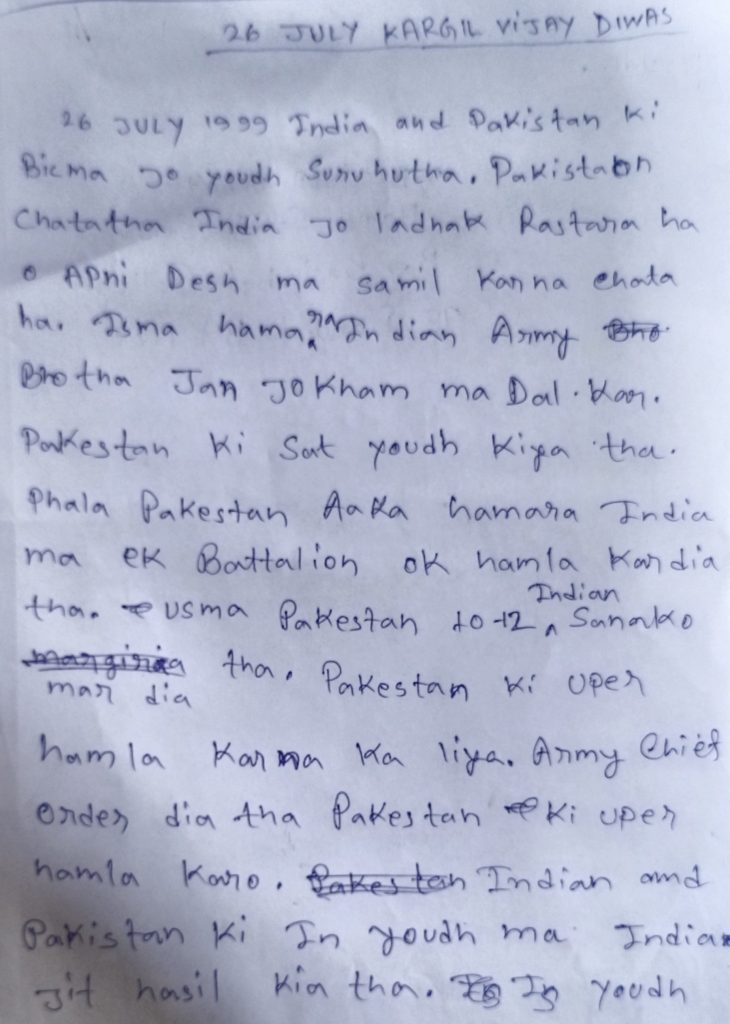 26 JULY KARGIL VIJAY DIWAS
26 JULY 1999 India and Pakistan Ki
Bicma Jo youdh Suru hutha. Pakistan
Chatatha India Jo ladhak Rastara ha
o APni Desh ma samil Karna chata
ha. Isma hama ra Indian Army
Bho tha Jan JoKham ma Dal. Kar.
Pakestan Ki Sat youdh Kiya tha.
Phala Pakestan AaKa hamara India
ma eK Battalion oK hamla Kardia
tha. usma Pakestan 10-12 Indian Sanako
mar dia tha. Pakestan Ki uper
hamla Karna Ka liya. Army Chief
order dia tha Pakestan Ki uper
hamla Karo. Indian and
Pakistan Ki In youdh ma India
Jit hasil Kia tha. Is youdh